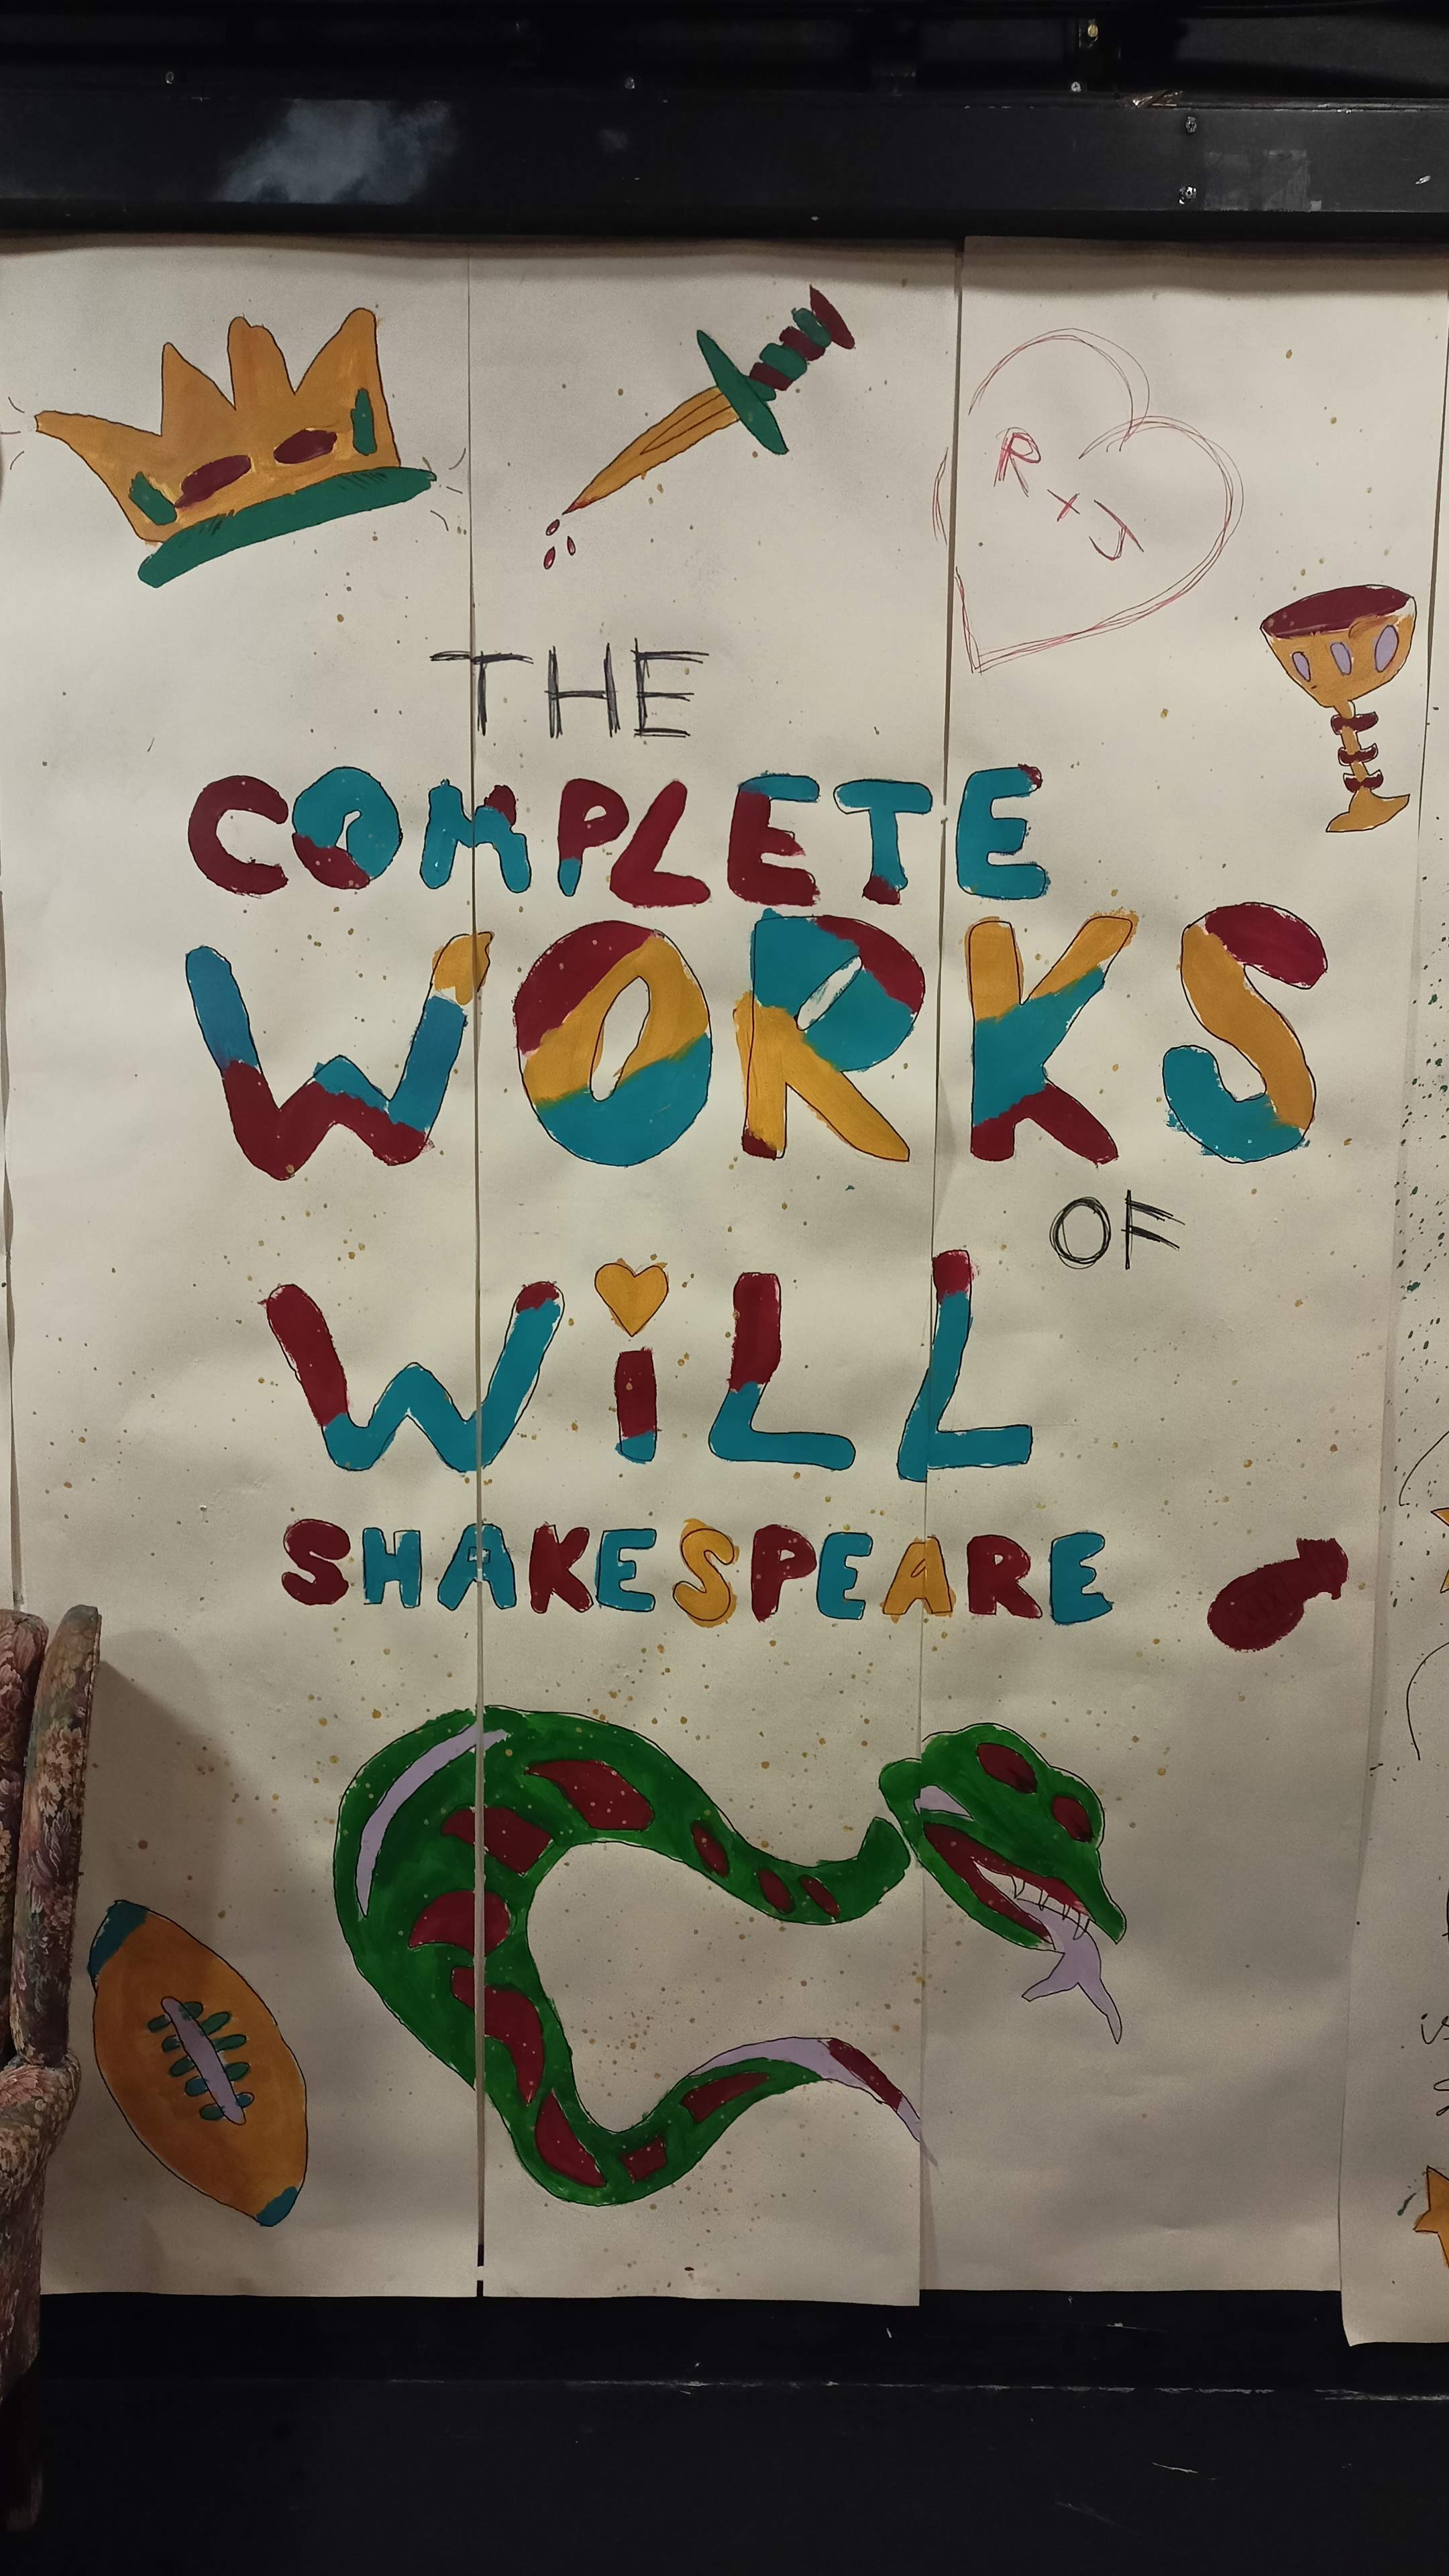 R + J
THE
COMPLETE
WORKS
OF
WiLL
SHAKESPEARE